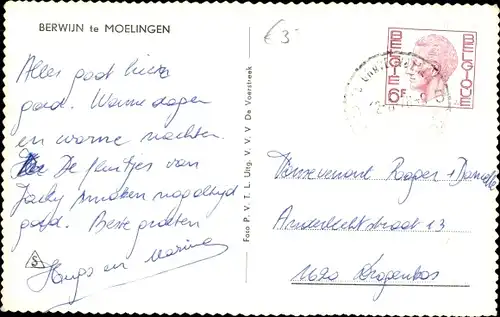 BERWIJN te MOELINGEN
€3
Alles gaat hier
goed. Warme dagen
en warme nachten.
De fluitjes van
Jacky smaken nog altijd
goed. Beste groeten
Hugo en Marina
S
Foto P. V. T. L. Uitg. V. V. V. De Voerstreek
BELGIE 6F BELGIQUE
Roger + Danielle
Anderlechtstraat 13
1620 Drogenbos